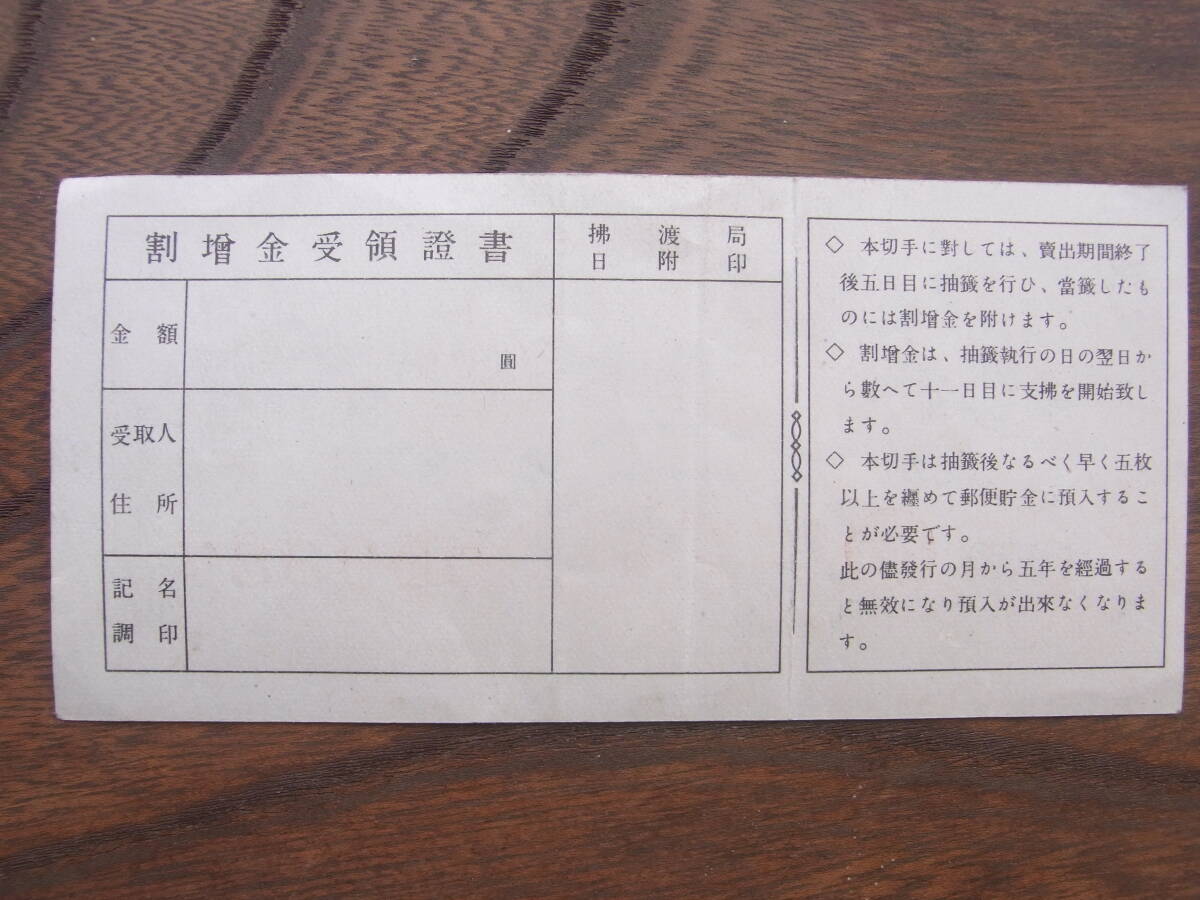 割增金受領證書
拂渡局
日附印
金額
圓
受取人
住所
記名
調印
◇ 本切手に對しては、賣出期間終了
後五日目に抽籤を行ひ、當籤したも
のには割增金を附けます。
◇ 割增金は、抽籤執行の日の翌日か
ら數へて十一日目に支拂を開始致し
ます。
◇ 本切手は抽籤後なるべく早く五枚
以上を纏めて郵便貯金に預入するこ
とが必要です。
此の儘發行の月から五年を經過する
と無效になり預入が出來なくなりま
す。